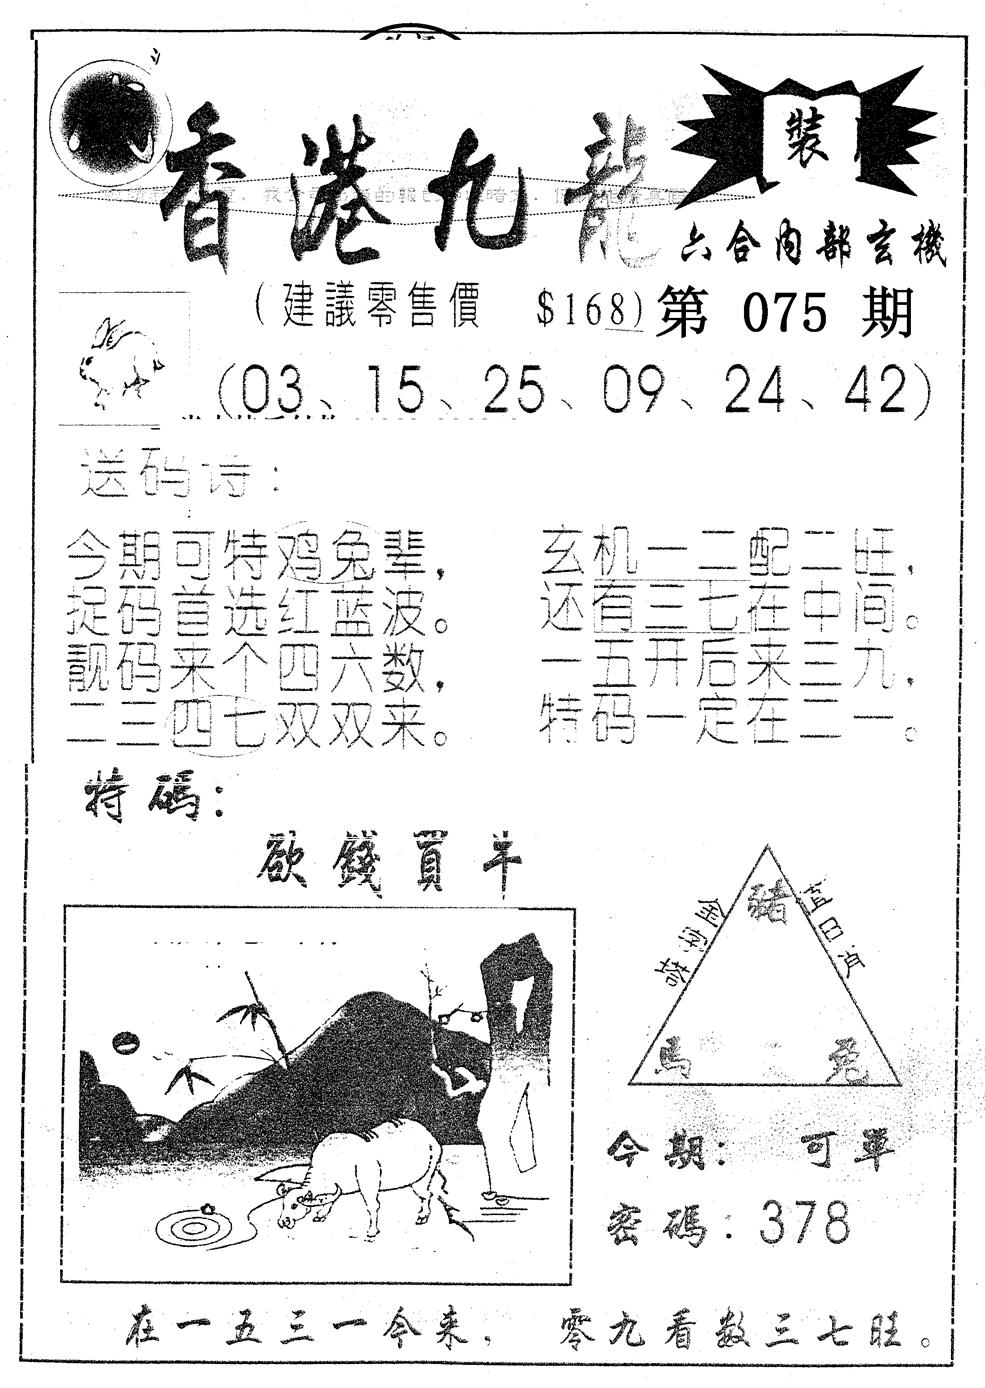 香港九龍
裝
六合內部玄機
(建議零售價 $168) 第 075 期
(03、15、25、09、24、42)
送码诗:
今期可特鸡兔辈，
捉码首选红蓝波。
靓码来个四六数，
二三四七双双来。
玄机一二配二旺，
还有三七在中间。
一五开后来三九，
特码一定在二一。
特碼:
欲錢買牛
豬
馬 兔
今期: 可單
密碼: 378
在一五三一今来， 零九看数三七旺。